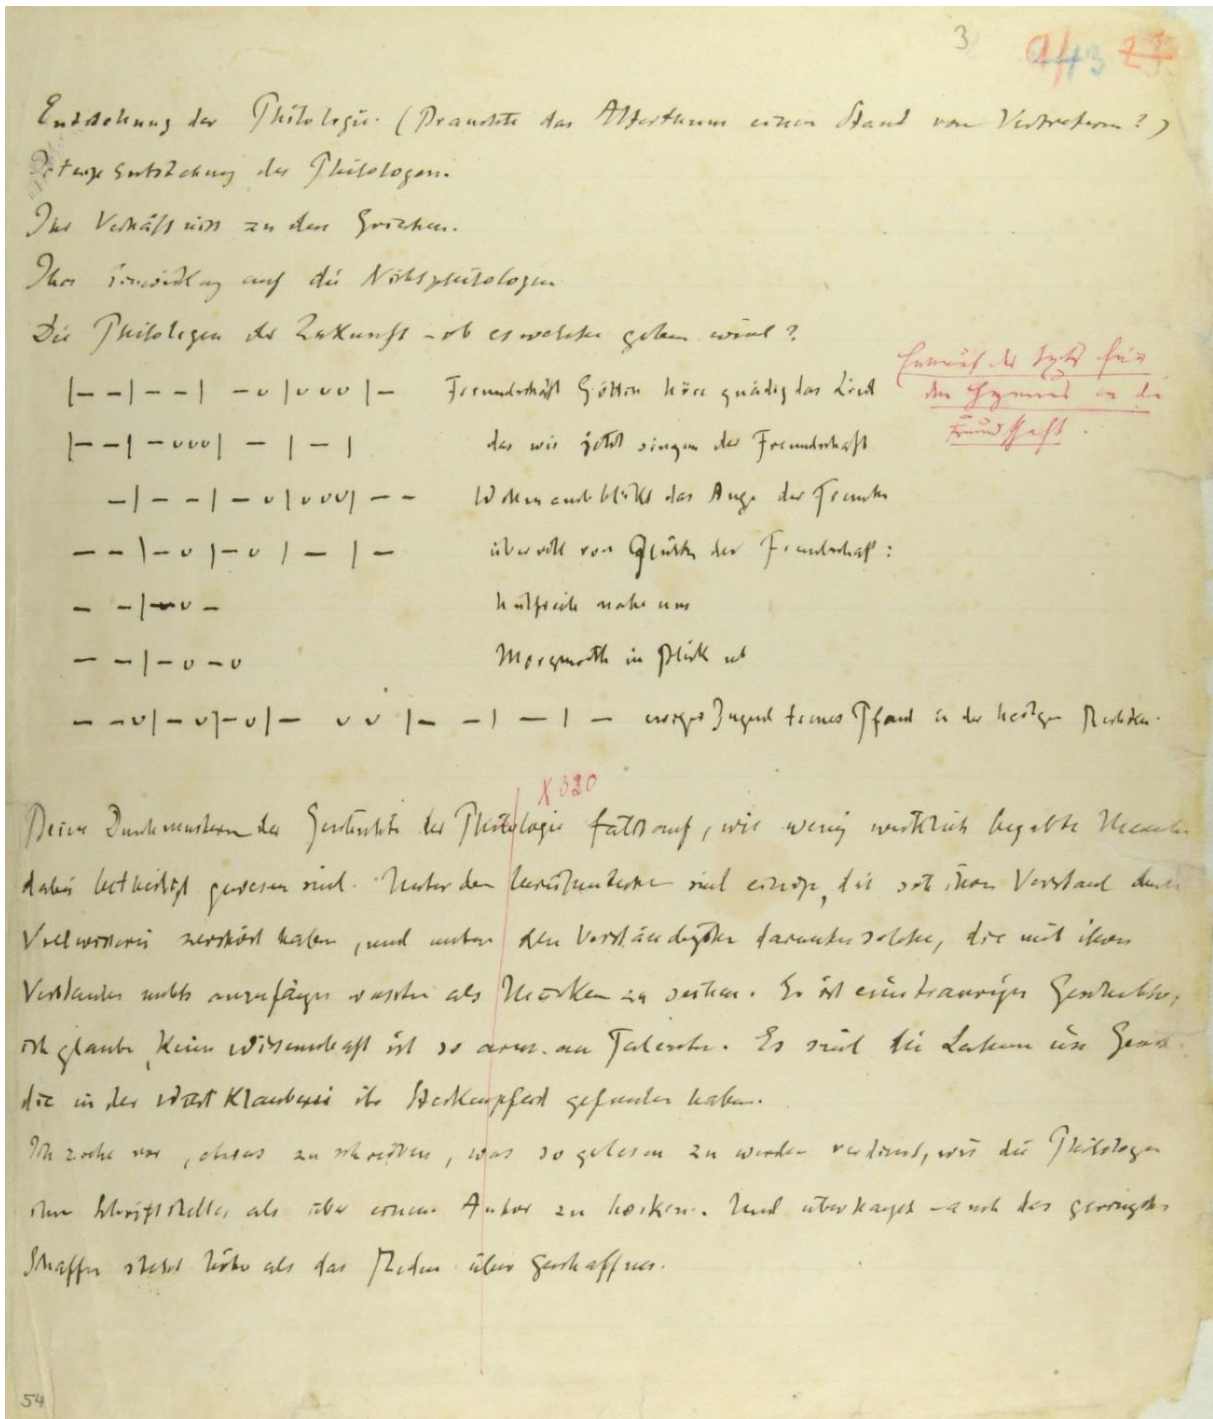 3
Entstehung der Philologie. (Brauchte das Alterthum einen Stand von Vertretern?)
Jetzige Entstehung des Philologen.
Ihr Verhältniss zu den Griechen.
Ihre Einwirkung auf die Nichtphilologen
Die Philologen der Zukunft – ob es welche geben wird?
|– –|– –| –ᴗ |ᴗᴗᴗ |– Freundschaft Göttin höre gnädig das Lied
Entwurf des Textes für
den Hymnus an die
Freundschaft.
|– –| –ᴗᴗᴗ| – | – | das wir jetzt singen der Freundschaft
–| – –| – ᴗ|ᴗᴗᴗ| – – Wohin auch blickt das Auge der Freunde
– – | –ᴗ |–ᴗ | – | – übervoll von Glück der Freundschaft:
– –|–ᴗ – hülfreich nahe uns
– –|–ᴗ –ᴗ Morgenroth im Blick und
– –ᴗ|–ᴗ|–ᴗ|– ᴗ ᴗ |– –| – | – ewiger Jugend treues Pfand in der heilgen Rechten.
X 320
Beim Durchmustern der Geschichte der Philologie fällt auf, wie wenig wirklich begabte Menschen
dabei betheiligt gewesen sind. Unter den berühmtesten sind einige, die sich ihren Verstand durch
Vielwisserei zerstört haben, und unter den Verständigsten darunter solche, die mit ihrem
Verstande nichts anzufangen wussten als Mücken zu seihen. Es ist eine traurige Geschichte,
ich glaube, keine Wissenschaft ist so arm an Talenten. Es sind die Lahmen im Geiste
die in der Wortklauberei ihr Steckenpferd gefunden haben.
Ich ziehe vor, etwas zu schreiben, was so gelesen zu werden verdient, wie die Philologen
ihre Schriftsteller, als über einem Autor zu hocken. Und überhaupt – auch das geringste
Schaffen steht höher als das Reden über Geschaffnes.
54